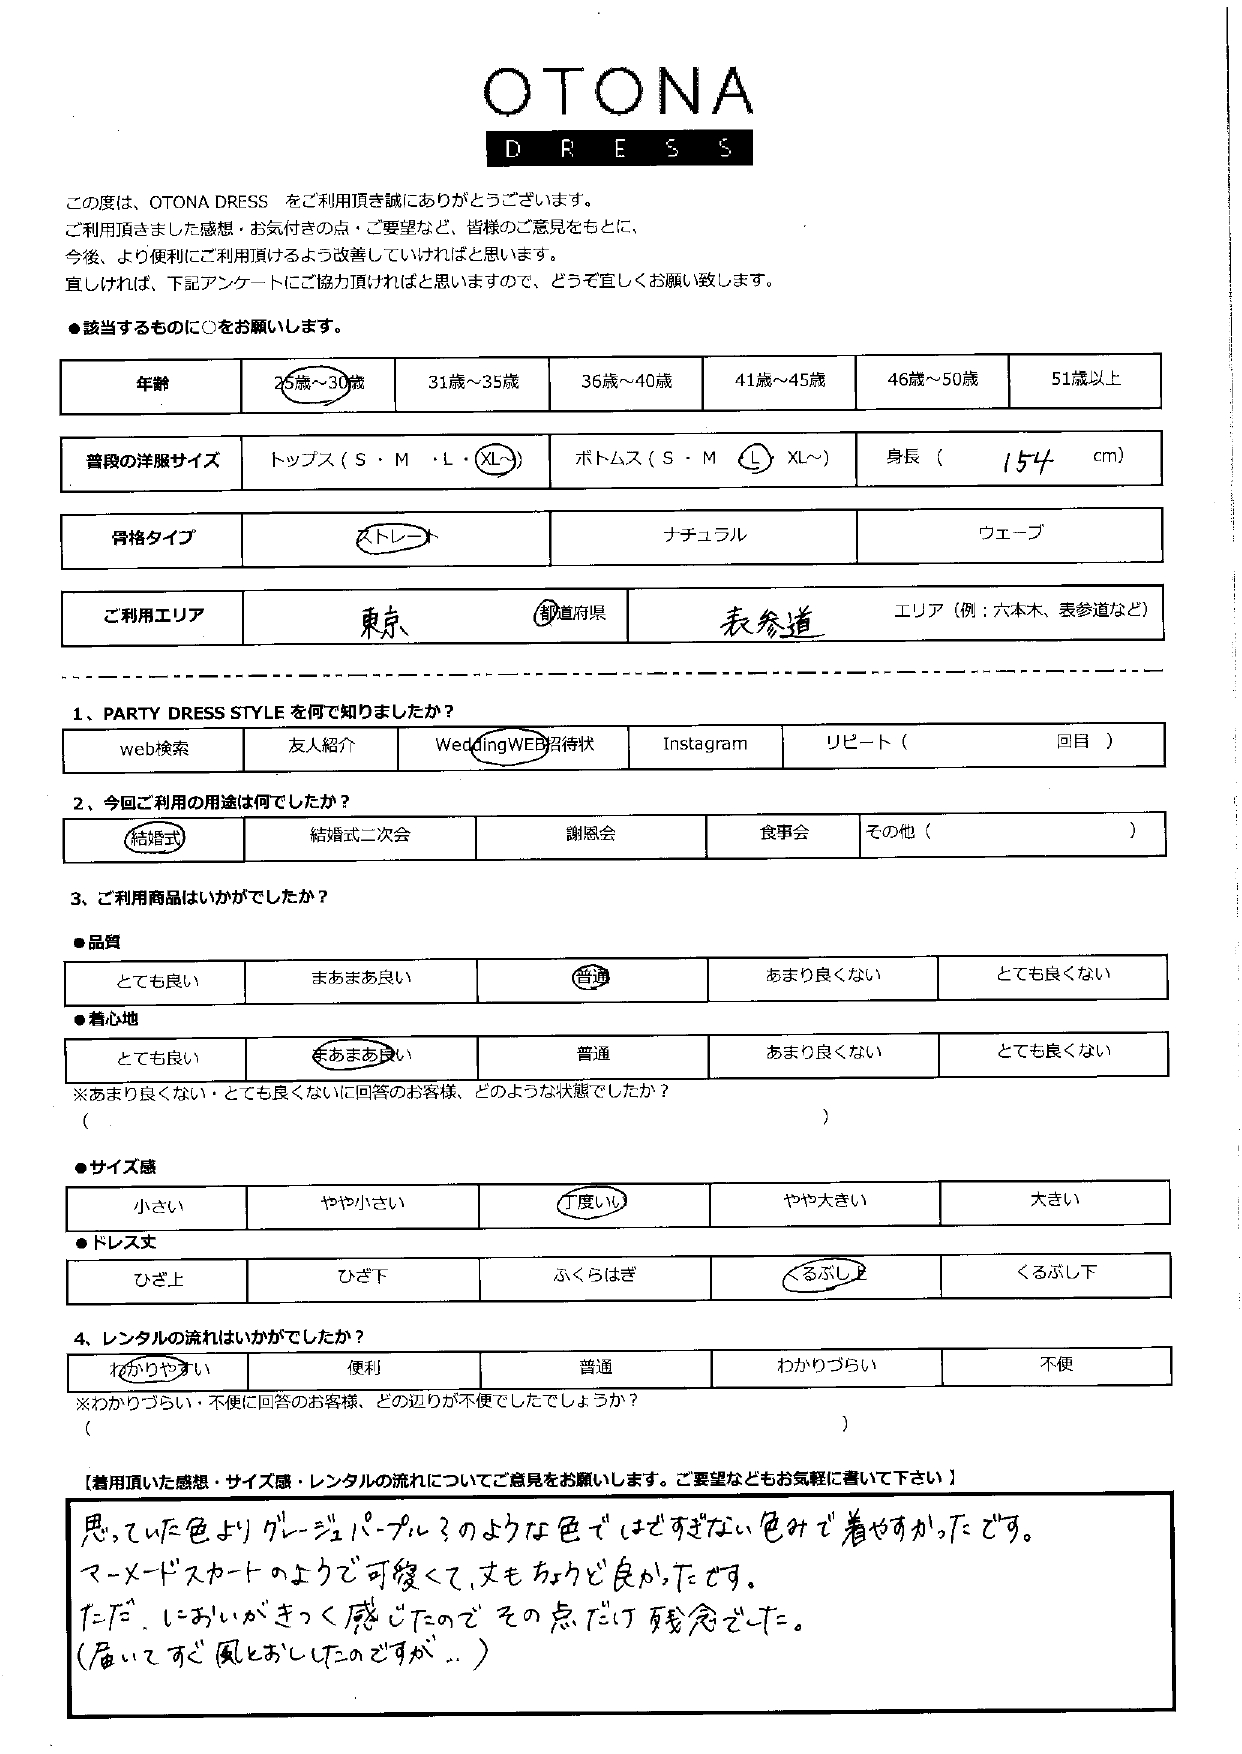 OTONA
DRESS
この度は、OTONA DRESS をご利用頂き誠にありがとうございます。
ご利用頂きました感想・お気付きの点・ご要望など、皆様のご意見をもとに、
今後、より便利にご利用頂けるよう改善していければと思います。
宜しければ、下記アンケートにご協力頂ければと思いますので、どうぞ宜しくお願い致します。
●該当するものに○をお願いします。
年齢 25歳～30歳 31歳～35歳 36歳～40歳 41歳～45歳 46歳～50歳 51歳以上
普段の洋服サイズ トップス（ S ・ M ・L ・ XL～） ボトムス（ S ・ M L ・ XL～） 身長 （ 154 cm）
骨格タイプ ストレート ナチュラル ウェーブ
ご利用エリア 東京 都道府県 表参道 エリア（例：六本木、表参道など）
1、PARTY DRESS STYLE を何で知りましたか？
web検索 友人紹介 WeddingWEB招待状 Instagram リピート（ 回目 ）
2、今回ご利用の用途は何でしたか？
結婚式 結婚式二次会 謝恩会 食事会 その他（ ）
3、ご利用商品はいかがでしたか？
●品質
とても良い まあまあ良い 普通 あまり良くない とても良くない
●着心地
とても良い まあまあ良い 普通 あまり良くない とても良くない
※あまり良くない・とても良くないに回答のお客様、どのような状態でしたか？
（ ）
●サイズ感
小さい やや小さい 丁度いい やや大きい 大きい
●ドレス丈
ひざ上 ひざ下 ふくらはぎ くるぶし上 くるぶし下
4、レンタルの流れはいかがでしたか？
わかりやすい 便利 普通 わかりづらい 不便
※わかりづらい・不便に回答のお客様、どの辺りが不便でしたでしょうか？
（ ）
【着用頂いた感想・サイズ感・レンタルの流れについてご意見をお願いします。ご要望などもお気軽に書いて下さい】
思っていた色よりグレージュパープル？のような色ではですぎない色みで着やすかったです。
マーメードスカートのようで可愛くて、丈もちょうど良かったです。
ただ、においがきつく感じたのでその点だけ残念でした。
（届いてすぐ風とおししたのですが‥）